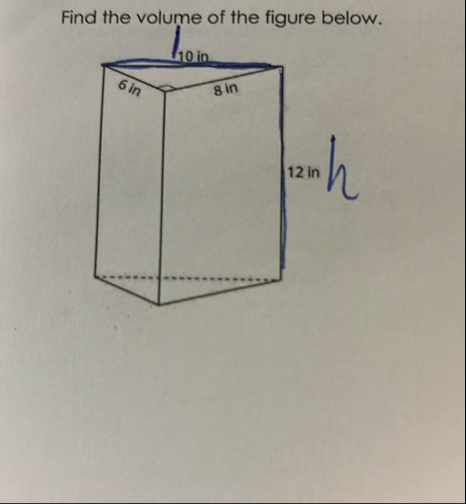 Find the volume of the figure below.
l
10 in
6 in
8 in
12 in h